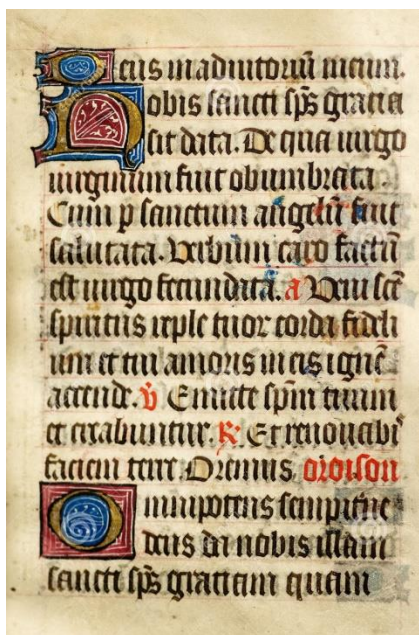 Deus in adiutoriū meum.
Nobis sancti sp̄s gratia
sit data. De qua uirgo
uirginum fuit obumbrata.
Cum p̲ sanctum angelū fuit
salutata. Verbum caro factū
est uirgo fecundata. a Veni sc̄e
spiritus reple tuor corda fideli
um et tui amoris in eis ignē
accende. v̄ Emitte sp̄m tuum
et creabuntur. R̄ Et renouabi
faciem terre Oremus oroison
Omnipotens sempiterne
deus da nobis illam
sancti sp̄s gratiam quam